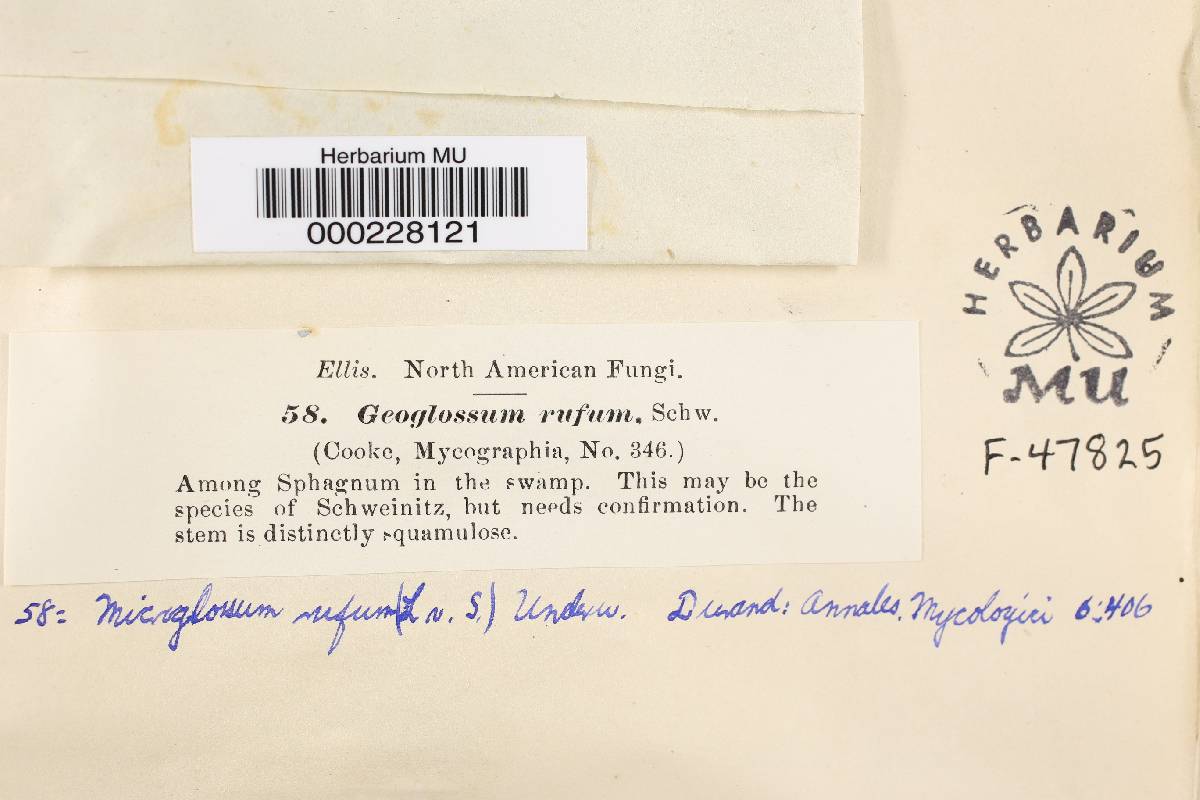 Herbarium MU
000228121
HERBARIUM
MU
F-47825
Ellis. North American Fungi.
58. Geoglossum rufum, Schw.
(Cooke, Mycographia, No. 346.)
Among Sphagnum in the swamp. This may be the
species of Schweinitz, but needs confirmation. The
stem is distinctly squamulose.
58= Microglossum rufum (L v. S.) Underw. Durand: Annales. Mycologici 6:406